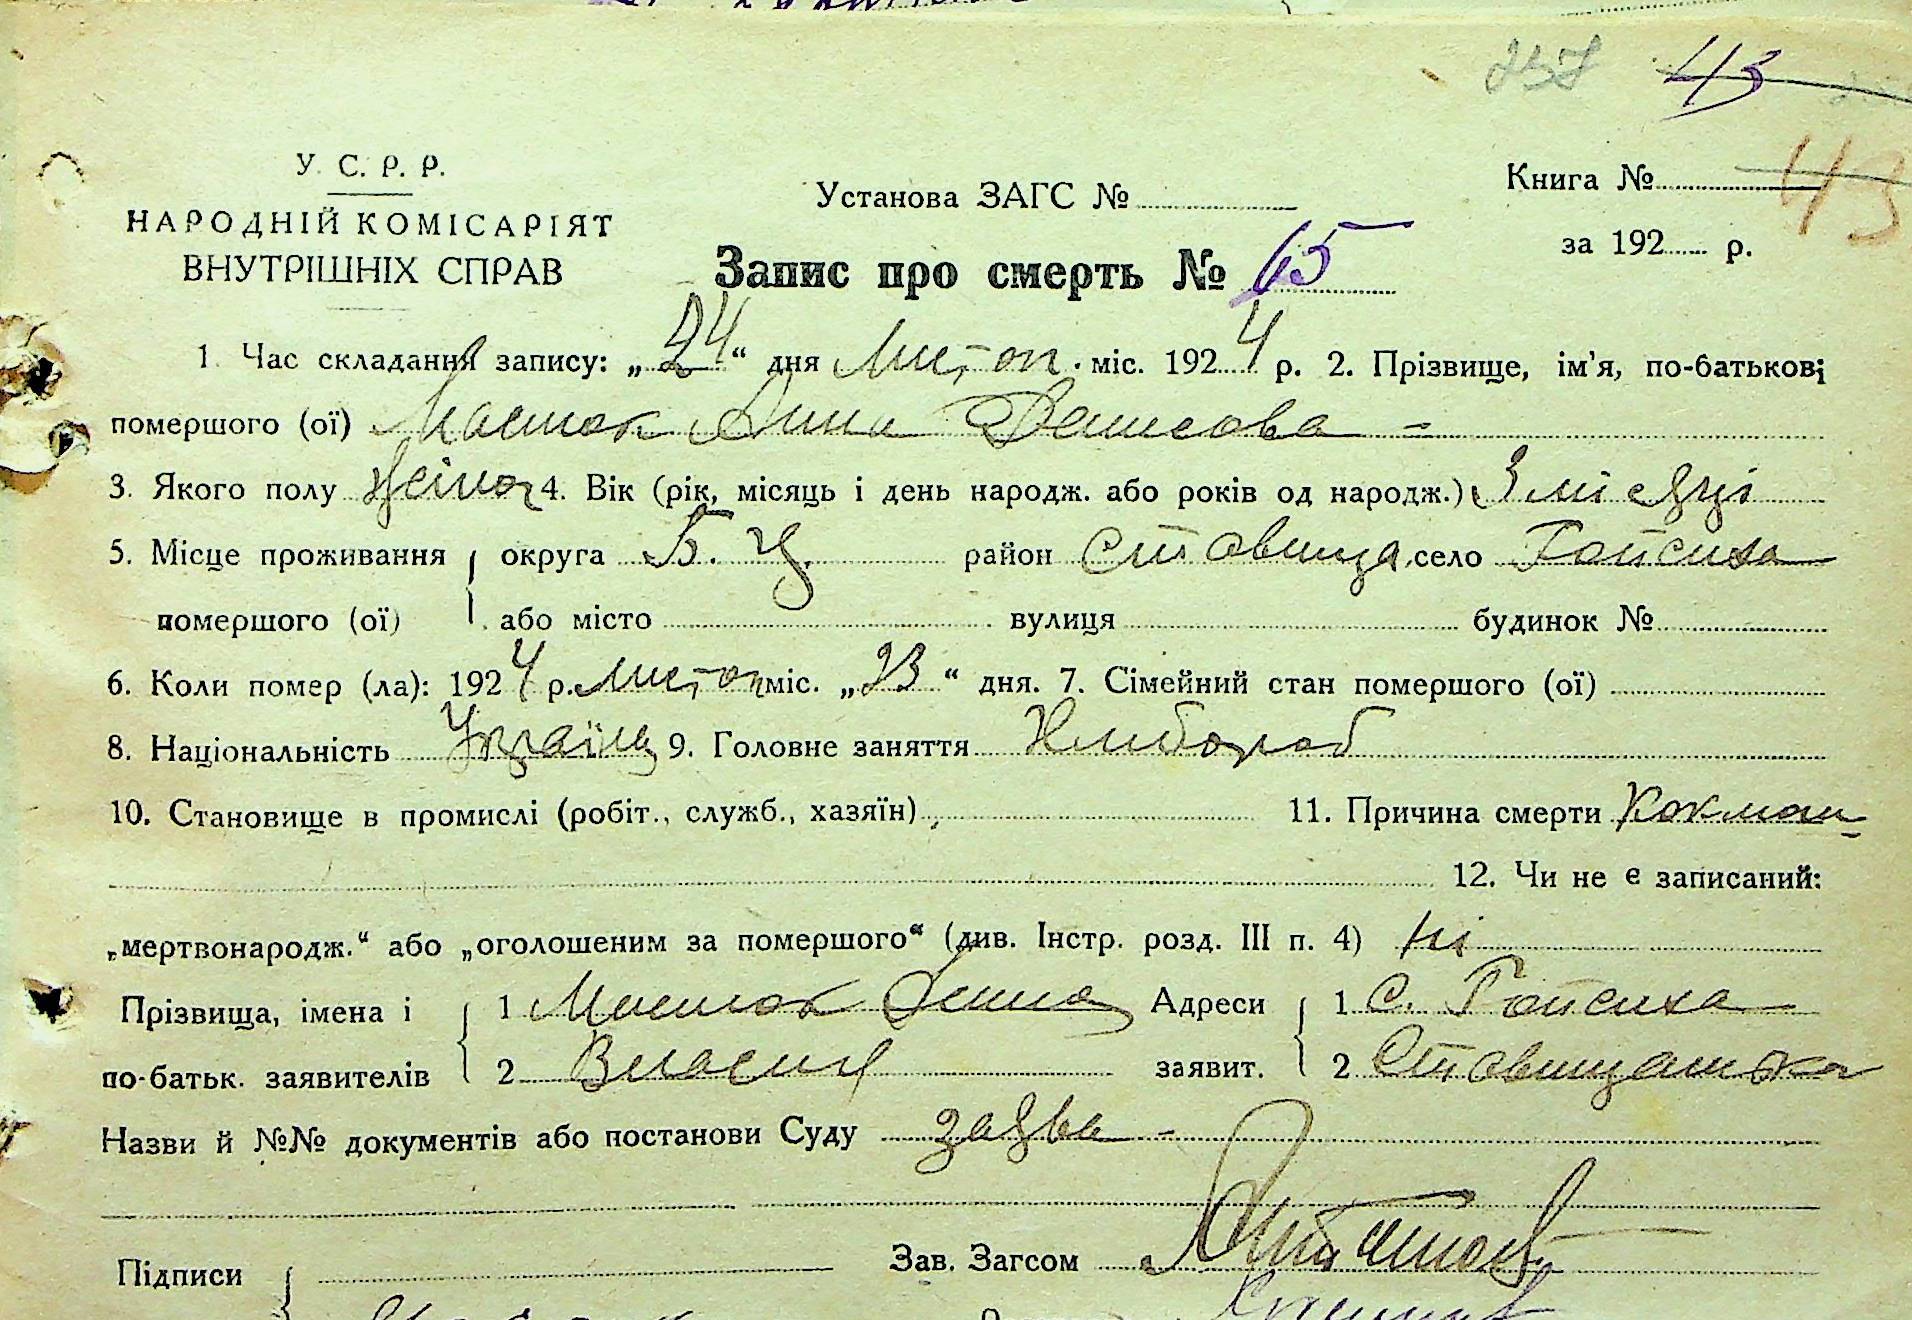 257 43
У. С. Р. Р.
НАРОДНІЙ КОМІСАРІЯТ
ВНУТРІШНІХ СПРАВ
Установа ЗАГС №
Книга № 43
за 192 р.
Запис про смерть № 65
1. Час складання запису: „24“ дня Листоп. міс. 1924 р. 2. Прізвище, ім'я, по-батькові
помершого (ої) Анна Денисова
3. Якого полу 4. Вік (рік, місяць і день народж. або років од народж.) 3 місяці
5. Місце проживання округа Б. Ц. район Ставища село Гайсиха
помершого (ої) або місто вулиця будинок №
6. Коли помер (ла): 1924 р. Листоп міс. „23“ дня. 7. Сімейний стан помершого (ої)
8. Національність Україн 9. Головне заняття Хлібороб
10. Становище в промислі (робіт., служб., хазяїн) 11. Причина смерти Коклюш
12. Чи не є записаний:
„мертвонародж.“ або „оголошеним за помершого“ (див. Інстр. розд. III п. 4) ні
Прізвища, імена і 1 Адреси 1 С. Гайсиха
по-батьк. заявителів 2 заявит. 2
Назви й №№ документів або постанови Суду заява
Зав. Загсом
Підписи